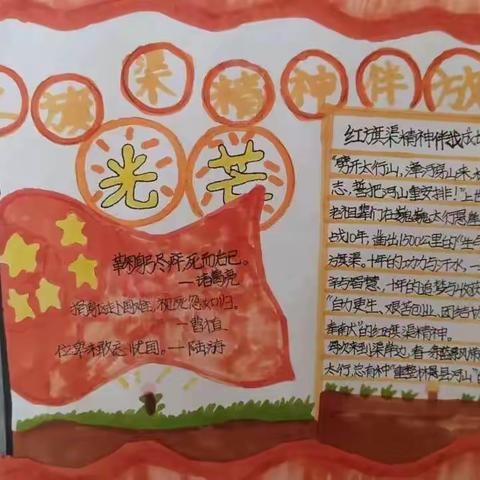 旗渠精神伴放
光芒
鞠躬尽瘁,死而后已。
—诸葛亮
捐躯赴国难,视死忽如归。
—曹植
位卑未敢忘忧国。—陆游
红旗渠精神伴我成
"劈开太行山,漳河穿山来
志,誓把河山重安排!"上世
老祖辈们在巍巍太行悬崖
战10年,凿出1500公里的"生
旗渠。十年的功力与汗水,一
与智慧,十年的追梦与收获
"自力更生、艰苦创业、团结协
奉献"的红旗渠精神。
每次来到渠岸边,看
太行,总有种"重整林县河山"